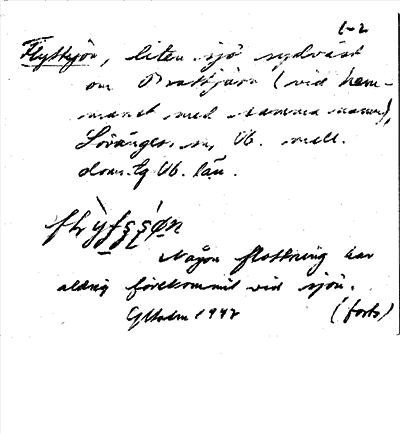 1-2
Flyttsjön, liten sjö sydväst
om Brattjärn (vid hem-
manet med samma namn),
Lövångers sn, Vb. mell.
doms. tg Vb. län.
Någon flottning har
aldrig förekommit vid sjön.
1942 (forts)